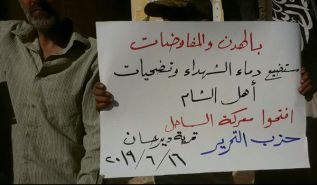 بالهدن والمفاوضات
ستضيع دماء الشهداء وتضحيات
أهل الشام
افتحوا معركة الساحل
حزب التحرير قرية ديرحسان
٢٠١٩/٦/١٦